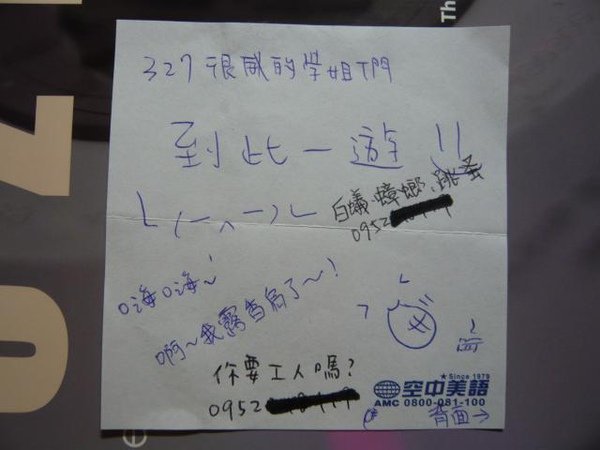 327 很威的學姐們
到此一遊!!
ㄟ(ㄧ︿ㄧ)ㄟ
白蟻、蟑螂、跳蚤
0952
嗨嗨~!
啊~我露香腸了~!
你要工人嗎?
0952
Since 1979
空中美語
AMC 0800-081-100
背面→
Th